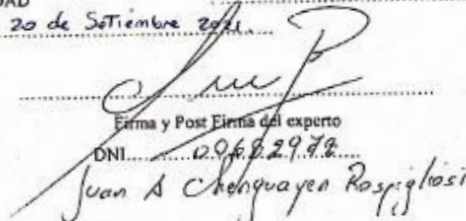 DAD
20 de Setiembre 2021.
Firma y Post Firma del experto
DNI
Juan A Chenguayen Rospigliosi